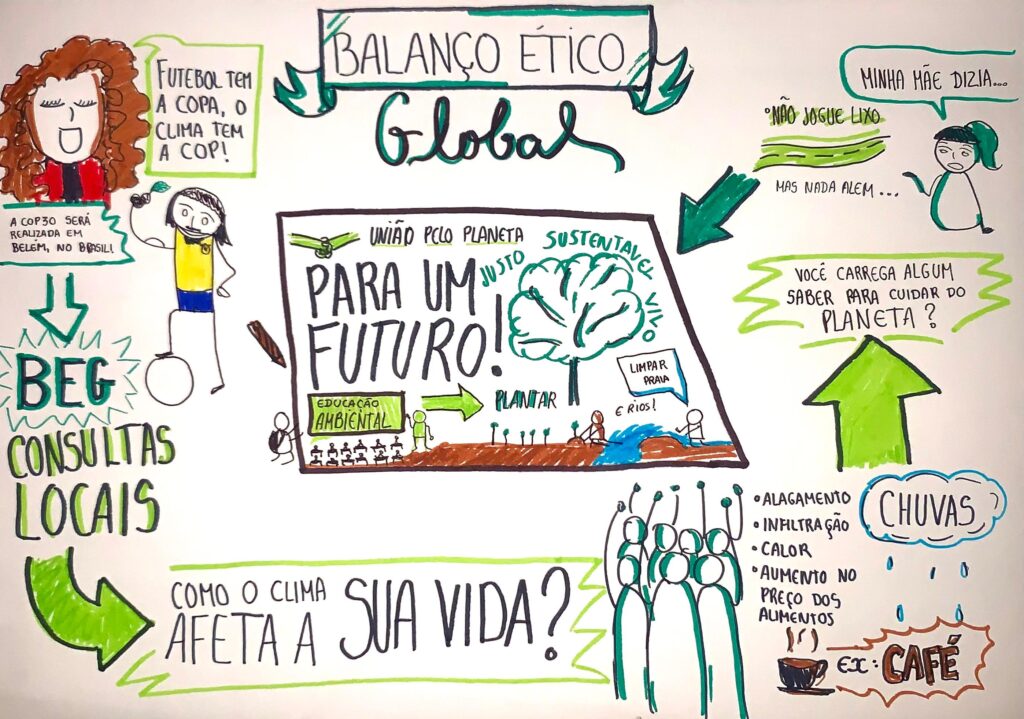 BALANÇO ÉTICO
Global
FUTEBOL TEM
A COPA, O
CLIMA TEM
A COP!
A COP30 SERÁ
REALIZADA EM
BELÉM, NO BRASIL!
BEG
CONSULTAS
LOCAIS
COMO O CLIMA
AFETA A SUA VIDA?
•ALAGAMENTO
•INFILTRAÇÃO
•CALOR
•AUMENTO NO
PREÇO DOS
ALIMENTOS
CHUVAS
EX: CAFÉ
VOCÊ CARREGA ALGUM
SABER PARA CUIDAR DO
PLANETA?
MINHA MÃE DIZIA...
•NÃO JOGUE LIXO
MAS NADA ALEM...
UNIÃO PELO PLANETA
PARA UM
FUTURO!
JUSTO
SUSTENTAVEL
VIVO
EDUCAÇÃO
AMBIENTAL
PLANTAR
LIMPAR
PRAIA
E RIOS!